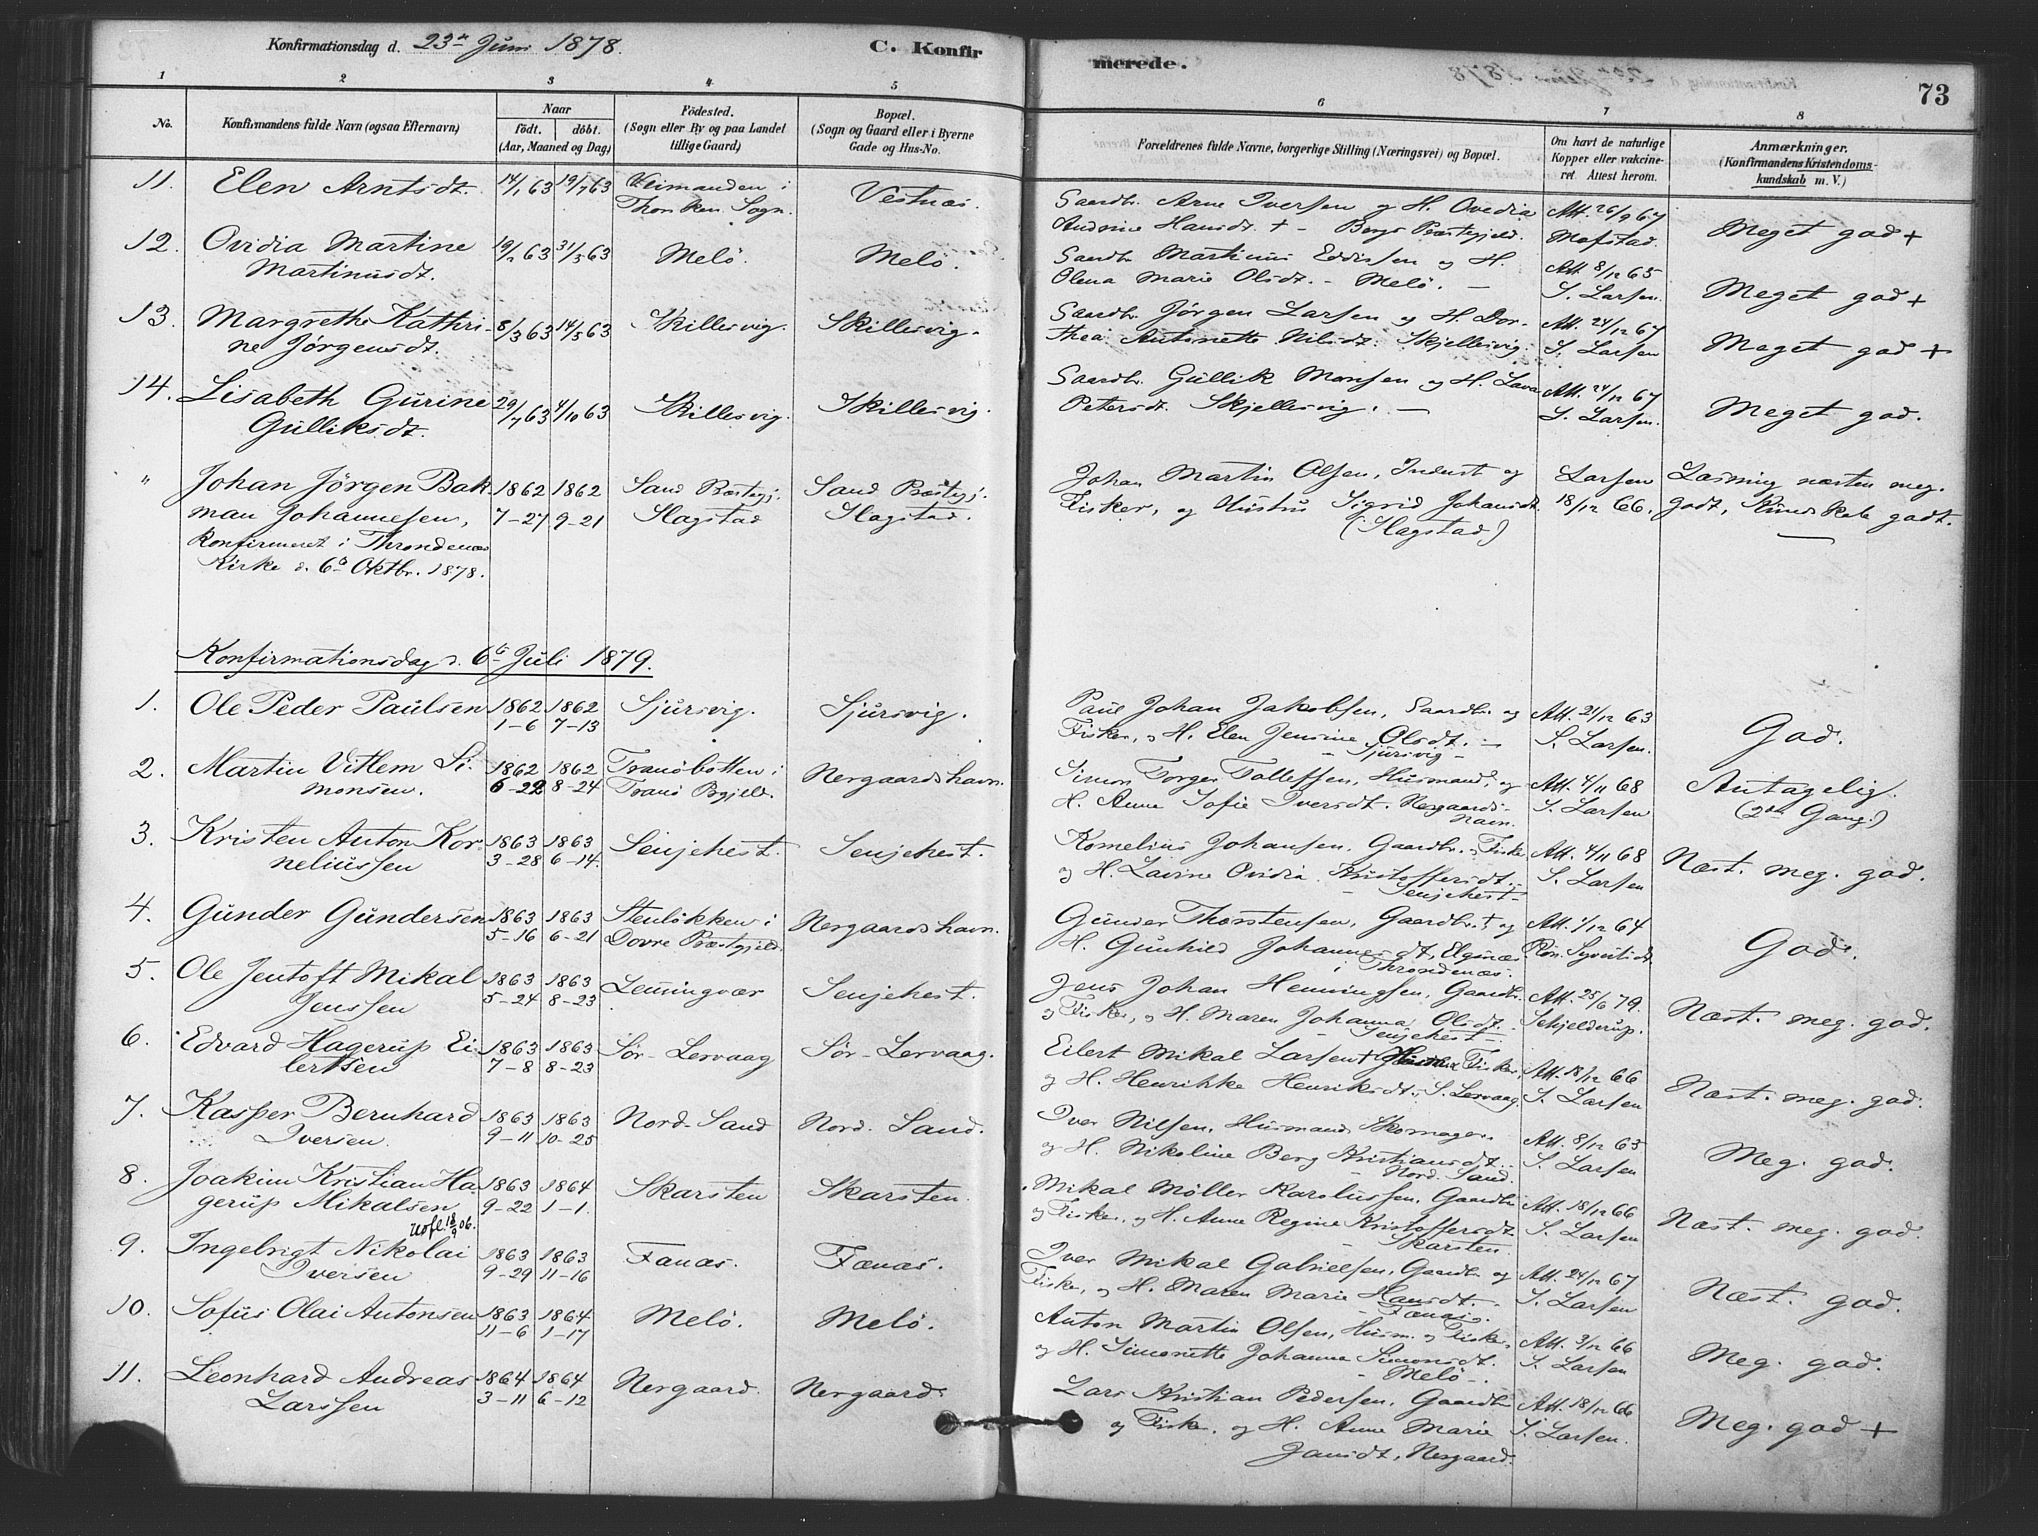 Konfirmationsdag d. 23de Juni 1878.
C. Konfir
merede.
73
1 2 3 4 5 6 7 8
No.
Konfirmandens fulde Navn (ogsaa Efternavn)
Naar
födt. döbt.
(Aar, Maaned og Dag)
Födested.
(Sogn eller By og paa Landet
tillige Gaard)
Bopæl.
(Sogn og Gaard eller i Byerne
Gade og Hus-No.
Forældrenes fulde Navne, borgerlige Stilling (Næringsvei) og Bopæl.
Om havt de naturlige
Kopper eller vakcine-
ret. Attest herom.
Anmærkninger.
(Konfirmandens Kristendoms-
kundskab m. V.)
11. Elen Arntsdt. 14/1 63 19/7 63 Veimanden i Vestnæs.
Sogn.
Gaardbr. Arne Iversen og H. Ovedia Att. 26/9 67
Andrine Hansdt. + - Bergs Præstegjeld. Mofstad.
Meget god +
12. Ovidia Martine 19/2 63 31/5 63 Melö. Melö.
Martinusdt.
Gaardbr. Martinus Eddissen og H. Att. 8/12 65
Olena Marie Olsdt. - Melö. - S. Larsen.
Meget god +
13. Margrethe Kathri- 8/3 63 14/5 63 Skillesvig. Skillesvig.
ne Jørgensdt.
Gaardbr. Jørgen Larsen og H. Dor- Att. 24/12 67
thea Antonette Nilsdt. Skjellesvig. S. Larsen
Meget god +
14. Lisabeth Gurine 29/7 63 4/10 63 Skillesvig. Skillesvig.
Gulliksdt.
Gaardbr. Gullik Monsen og H. Lava Att. 24/12 67
Petersdt. Skjellesvig. - S. Larsen.
Meget god.
" Johan Jørgen Bak- 1862 1862 Sand Præstegj. Sand Præstegj.
man Johannesen, 7-27 9-21 Slagstad Slagstad.
Konfirmeret i Throndenæs
Kirke d. 6te Oktbr. 1878.
Johan Martin Olsen, Inderst og Larsen Læsning næsten meg.
Fisker, og Hustru Sigrid Johansdt. 18/12 66. godt, Kundskab godt.
(Slagstad.)
Konfirmationsdag d. 6te Juli 1879.
1. Ole Peder Paulsen 1862 1862 Sjursvig. Sjursvig.
1-6 7-13
Paul Johan Jakobsen, Gaardbr. og Att. 21/12 63
Fisker, og H. Elen Jensine Olsdt. - S. Larsen.
- Sjursvig -
God.
2. Martin Villem Si- 1862 1862 Tranöbotten i Nergaardshavn.
monsen. 6-22 8-24 Tranö Prgjeld.
Simon Torger Tollefsen, Husmand, og Att. 4/11 68
H. Anne Sofie Iversdt. Nergaards- S. Larsen
havn.
Antagelig.
(2den Gang.)
3. Kristen Anton Kor- 1863 1863 Senjehest. Senjehest.
neliussen 3-28 6-14.
Kornelius Johansen, Gaardbr. og Fisker Att. 4/11 68
og H. Lavine Ovidia Kristoffersdt. - S. Larsen
- Senjehest -
Næst. meg. god.
4. Gunder Gundersen 1863 1863 Stenlökken i Nergaardshavn.
5-16 6-21 Dovre Præstgjeld.
Gunder Thorstensen, Gaardbr. + og Att. 1/12 64
H. Gunhild Johannesdt, Elgsnæs
i Throndenæs.
God.
5. Ole Jentoft Mikal 1863 1863 Lemmingvær Senjehest.
Jenssen 5-24 8-23
Jens Johan Henningsen, Gaardbr. Att. 25/6 79.
og Fisker, og H. Maren Johanna Olsdt. - Schjelderup.
- Senjehest -
Næst. meg. god.
6. Edvard Hagerup Ei- 1863 1863 Sør-Lervaag Sør-Lervaag.
lertsen 7-8 8-23
Eilert Mikal Larsen + Fisker, Att. 18/12 66
og H. Henrikke Henriksdt., S. Lervaag. S. Larsen
Næst. meg. god.
7. Kasper Bernhard 1863 1863 Nord-Sand Nord-Sand.
Iversen. 9-11 10-25
Iver Nilsen, Husmand Skomager. Att. 8/12 65
og H. Nikoline Berg Kristiansdt. - S. Larsen
- Nord-Sand.
Meg. god.
8. Joakim Kristian Ha- 1863 1864 Skarsten Skarsten.
gerup Mikalsen 9-22 1-1.
Utfl. 18/9 06.
Mikal Möller Karolussen, Gaardbr. Att. 18/12 66
og Fisker, og H. Anne Regine Kristoffersdt S. Larsen
Skarsten.
Næst. meg. god.
9. Ingebrigt Nikolai 1863 1863 Fanæs. Fænæs.
Iversen 9-29 11-16
Iver Mikal Gabrielsen, Gaardbr. og Att. 24/12 67
Fisker, og H. Maren Marie Hansdt. - S. Larsen
- Fænæs.
Næst. god.
10. Sofus Olai Antonsen 1863 1864 Melö. Melö.
11-6 1-17
Anton Martin Olsen, Husm. og Fisker, Att. 3/12 66
og H. Simonette Johanna Simonsdt. S. Larsen
- Melö -
Meg. god.
11. Leonhard Andreas 1864 1864 Nergaard. Nergaard.
Larssen 3-11 6-12
Lars Kristian Pedersen, Gaardbr. Att. 18/12 66
og Fisker, og H. Anne Marie S. Larsen.
Jansdt, Nergaard.
Meg. god +